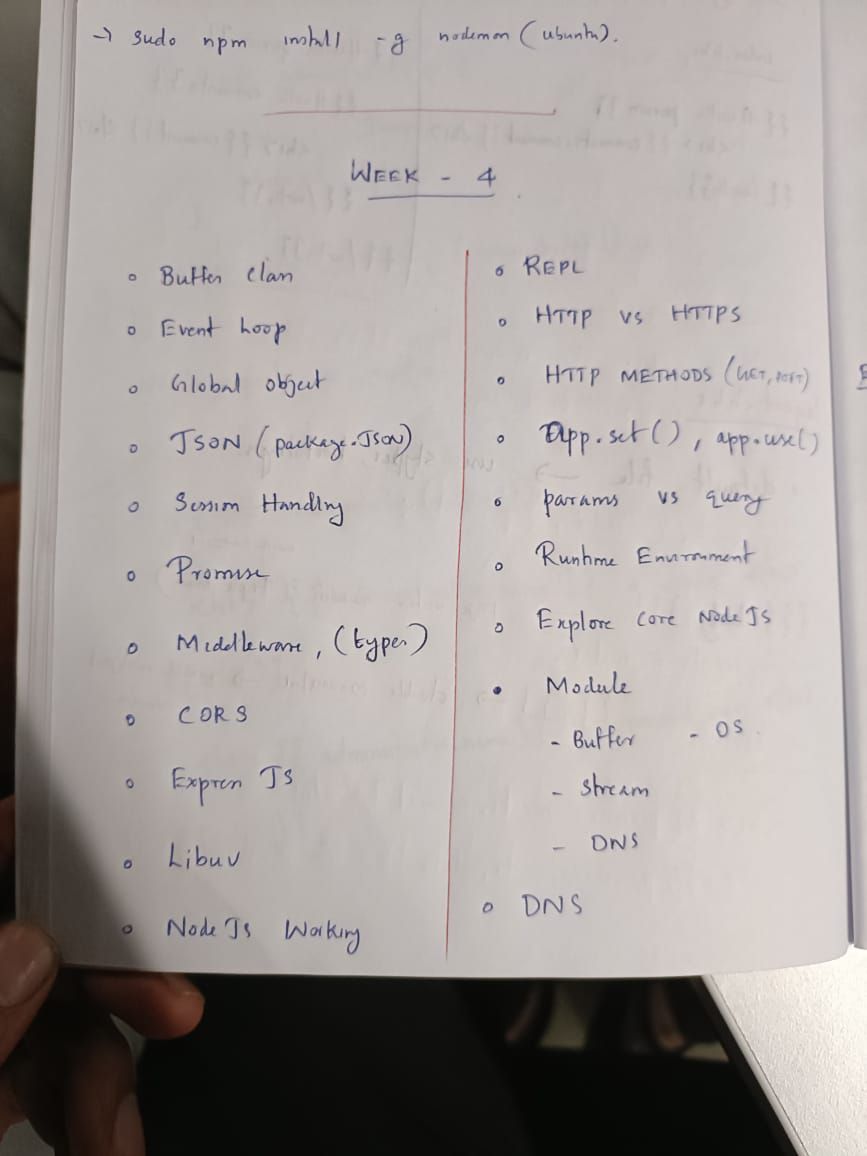 → sudo npm install -g nodemon (ubuntu).
WEEK - 4
∘ Buffer class
∘ Event Loop
∘ Global object
∘ JSON (package.JSON)
∘ Session Handling
∘ Promise
∘ Middleware, (types)
∘ CORS
∘ Express JS
∘ Libuv
∘ Node Js Working
∘ REPL
∘ HTTP vs HTTPS
∘ HTTP METHODS (GET, POST)
∘ app.set(), app.use()
∘ params vs query
∘ Runtime Environment
∘ Explore core Node Js
• Module
- Buffer - OS.
- Stream
- DNS
∘ DNS